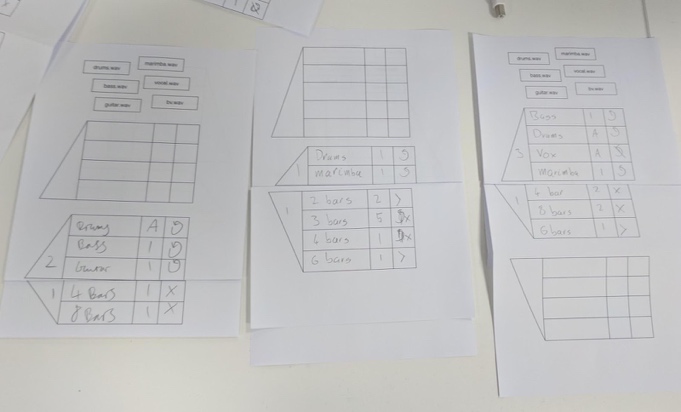 drums.wav marimba.wav
bass.wav vocal.wav
guitar.wav
Drums A
Bass 1
2 Guitar 1
1 4 Bars 1 X
8 Bars 1 X
Drums 1
1 marimba 1
1 2 bars 2 >
3 bars 5
1
6 bars 1 >
drums.wav marimba.wav
bass.wav vocal.wav
guitar.wav
Bass 1
Drums A
3 Vox A
Marimba 1
1 bar 2 X
8 bars 2 X
6 bars 1 >